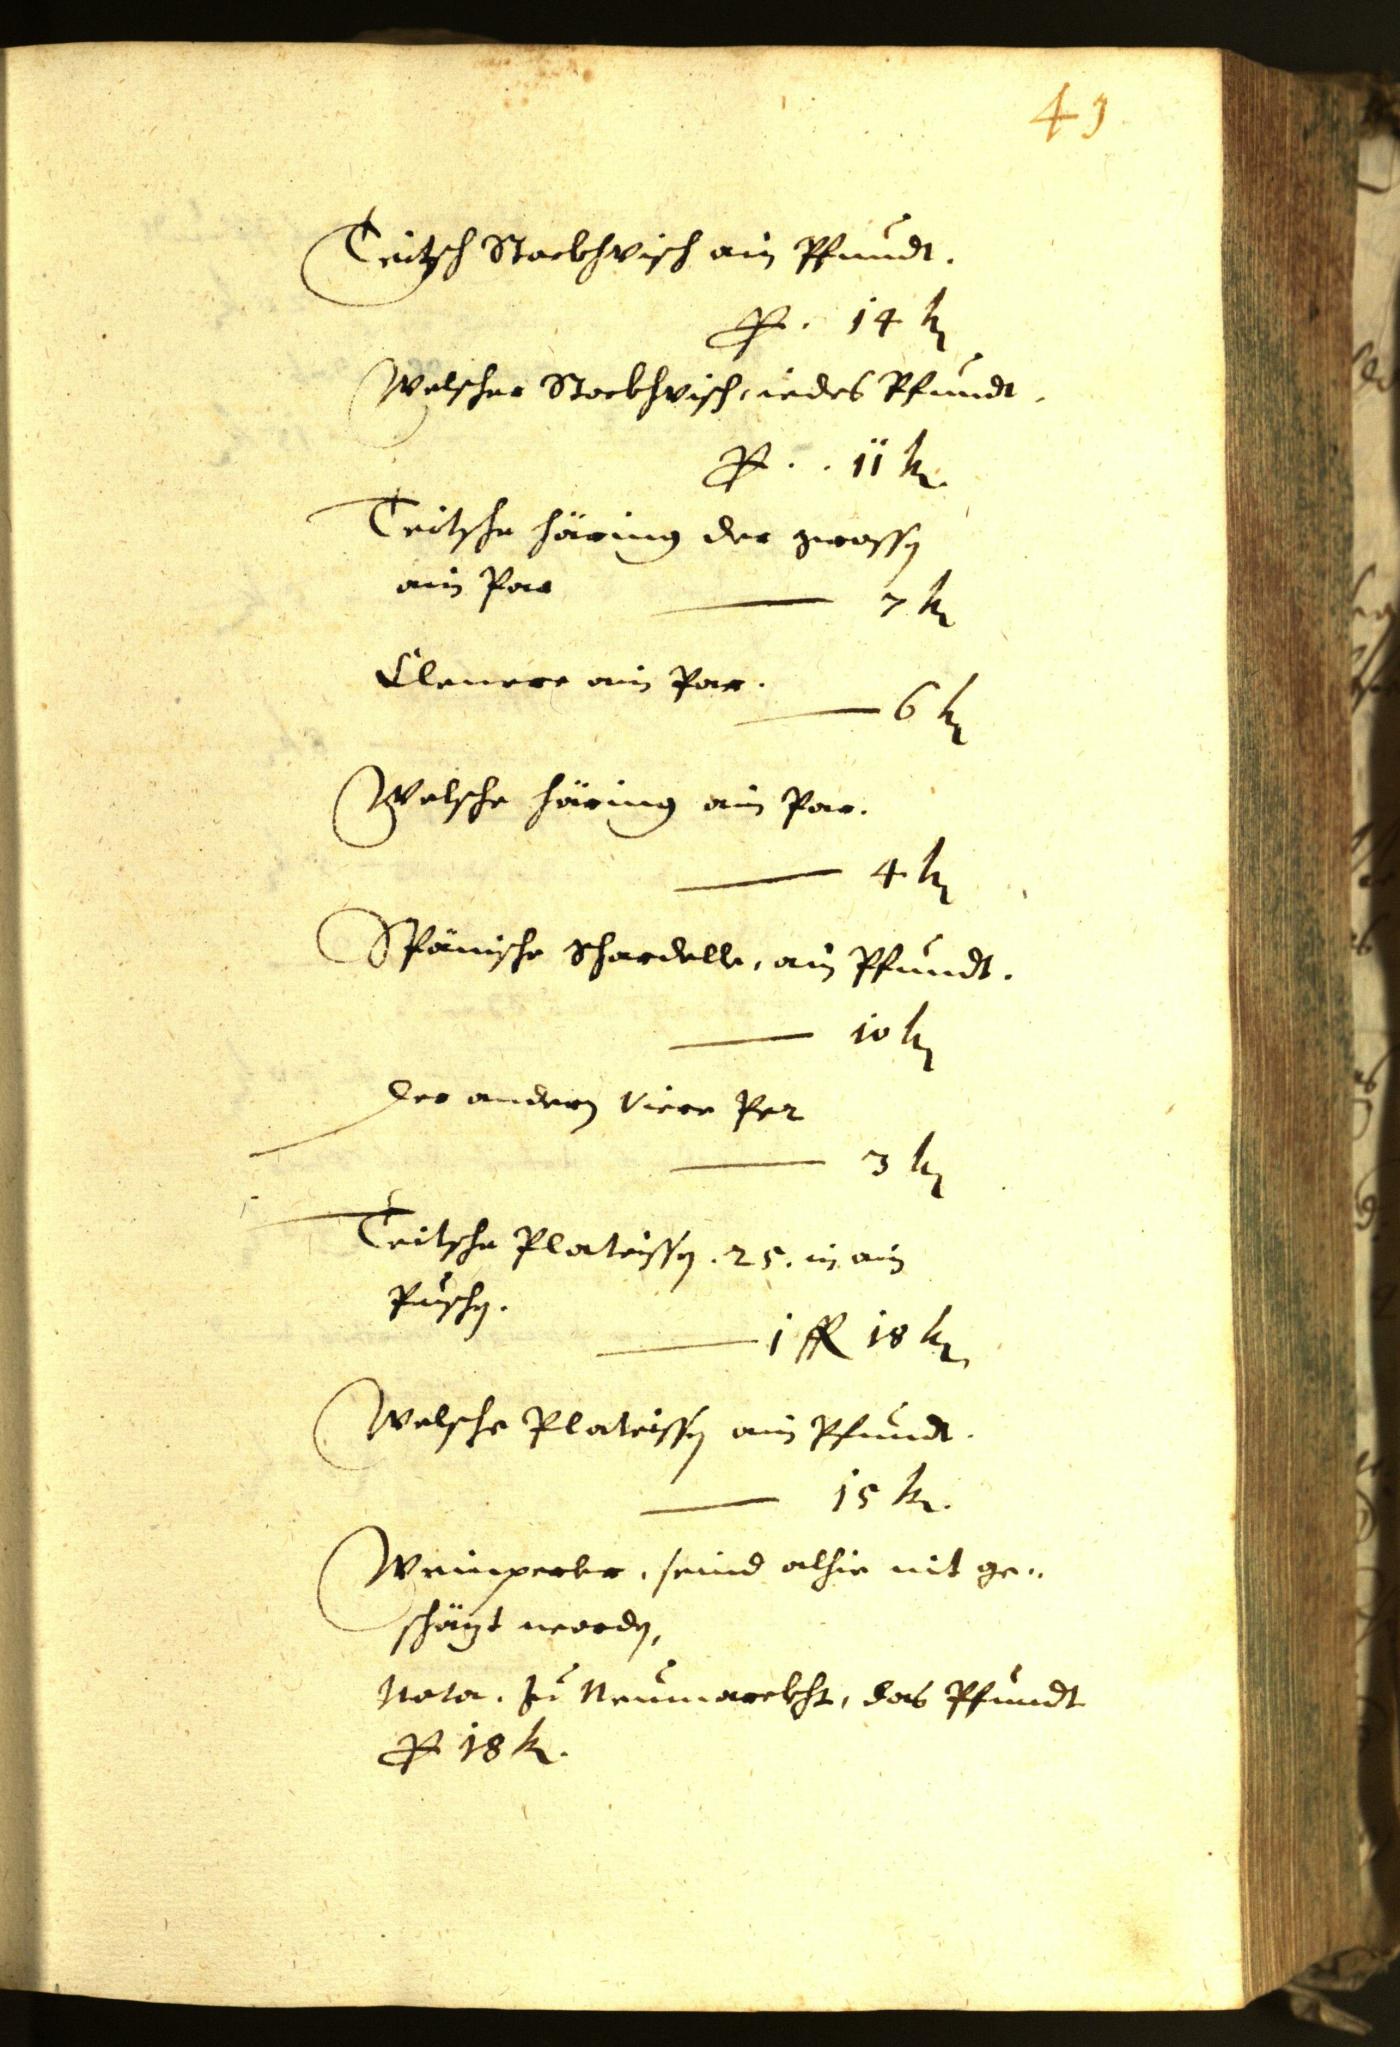 43
Teitsch Stockhvisch ain Pfundt.
Per . 14 kr
Welscher Stockhvisch, iedes Pfundt.
Per . . 11 kr.
Teitsche häring der grossen
ain Par
7 kr
Clenere ain Par.
6 kr
Welsche häring ain Par.
4 kr
Spänische Schardelle, ain Pfundt.
10 kr
der andern Viere Per
3 kr
Teitsche Plateissen . 25. in ain
Puschen.
1 fl 18 kr
Welsche Plateissen ain Pfundt.
15 kr.
Weinperer, seind alhie nit ge„
schäzt worden,
Nota. Zu Neumarckht, das Pfundt
Per 18 kr.